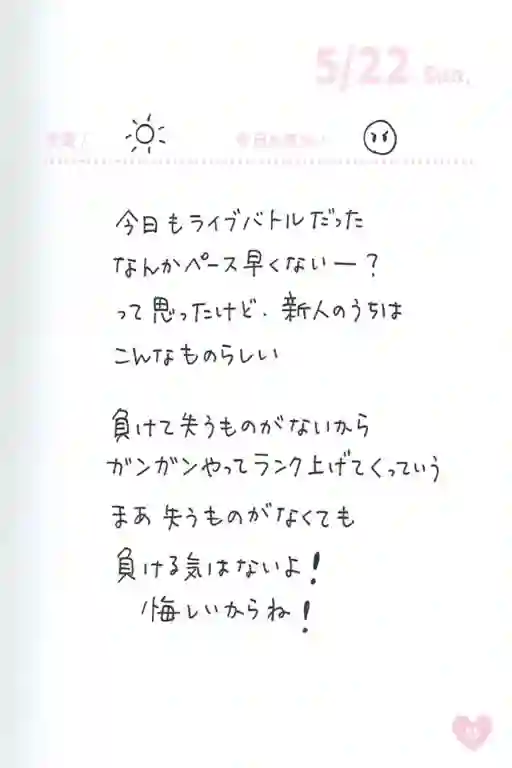 5/22 Sun.
今日もライブバトルだった
なんかペース早くないー？
って思ったけど、新人のうちは
こんなものらしい
負けて失うものがないから
ガンガンやってランク上げてくっていう
まあ失うものがなくても
負ける気はないよ！
悔しいからね！